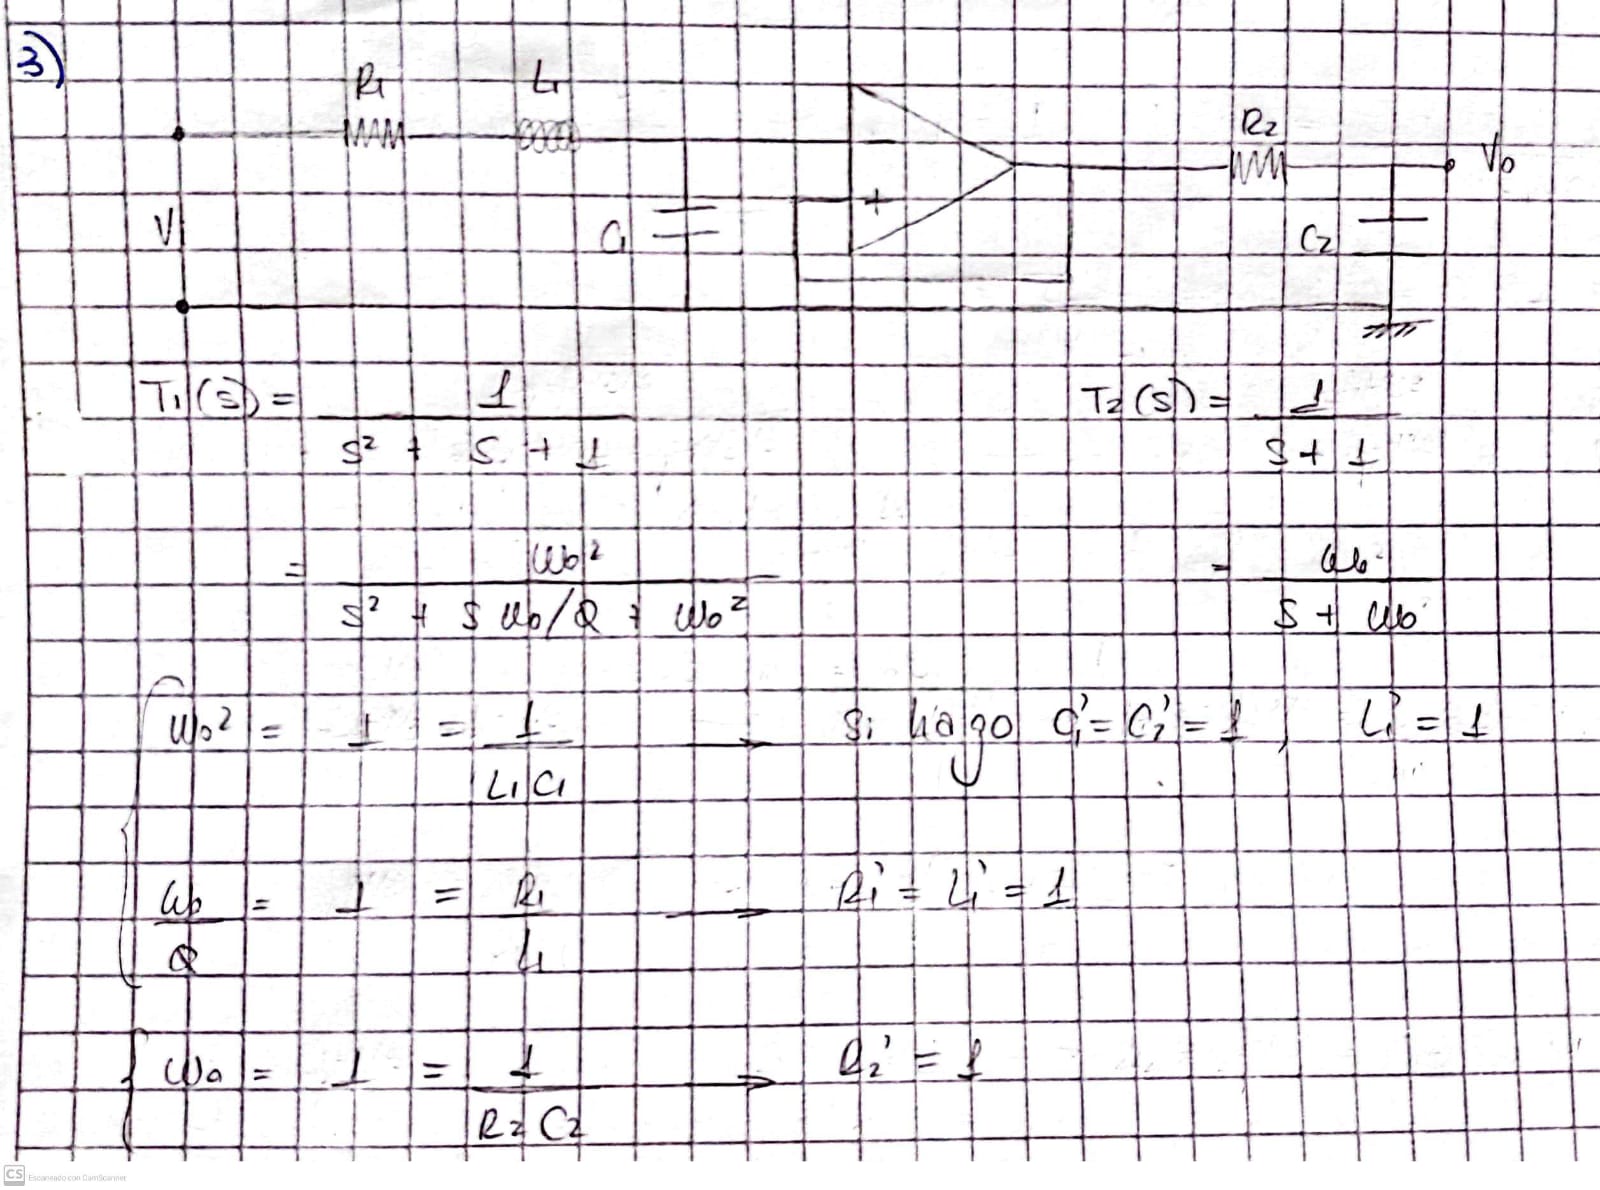 3)
R1 L1
R2
Vo
+
V
C1
C2
T1(s) = 1 / (s² + s + 1)
T2(s) = 1 / (s + 1)
= ω0² / (s² + s ω0/Q + ω0²)
= ω0 / (s + ω0)
ω0² = 1 = 1 / (L1 C1) → Si hago C1' = C2' = 1, L1' = 1
ω0 / Q = 1 = R1 / L1 → R1' = L1' = 1
ω0 = 1 = 1 / (R2 C2) → R2' = 1
CS Escaneado con CamScanner